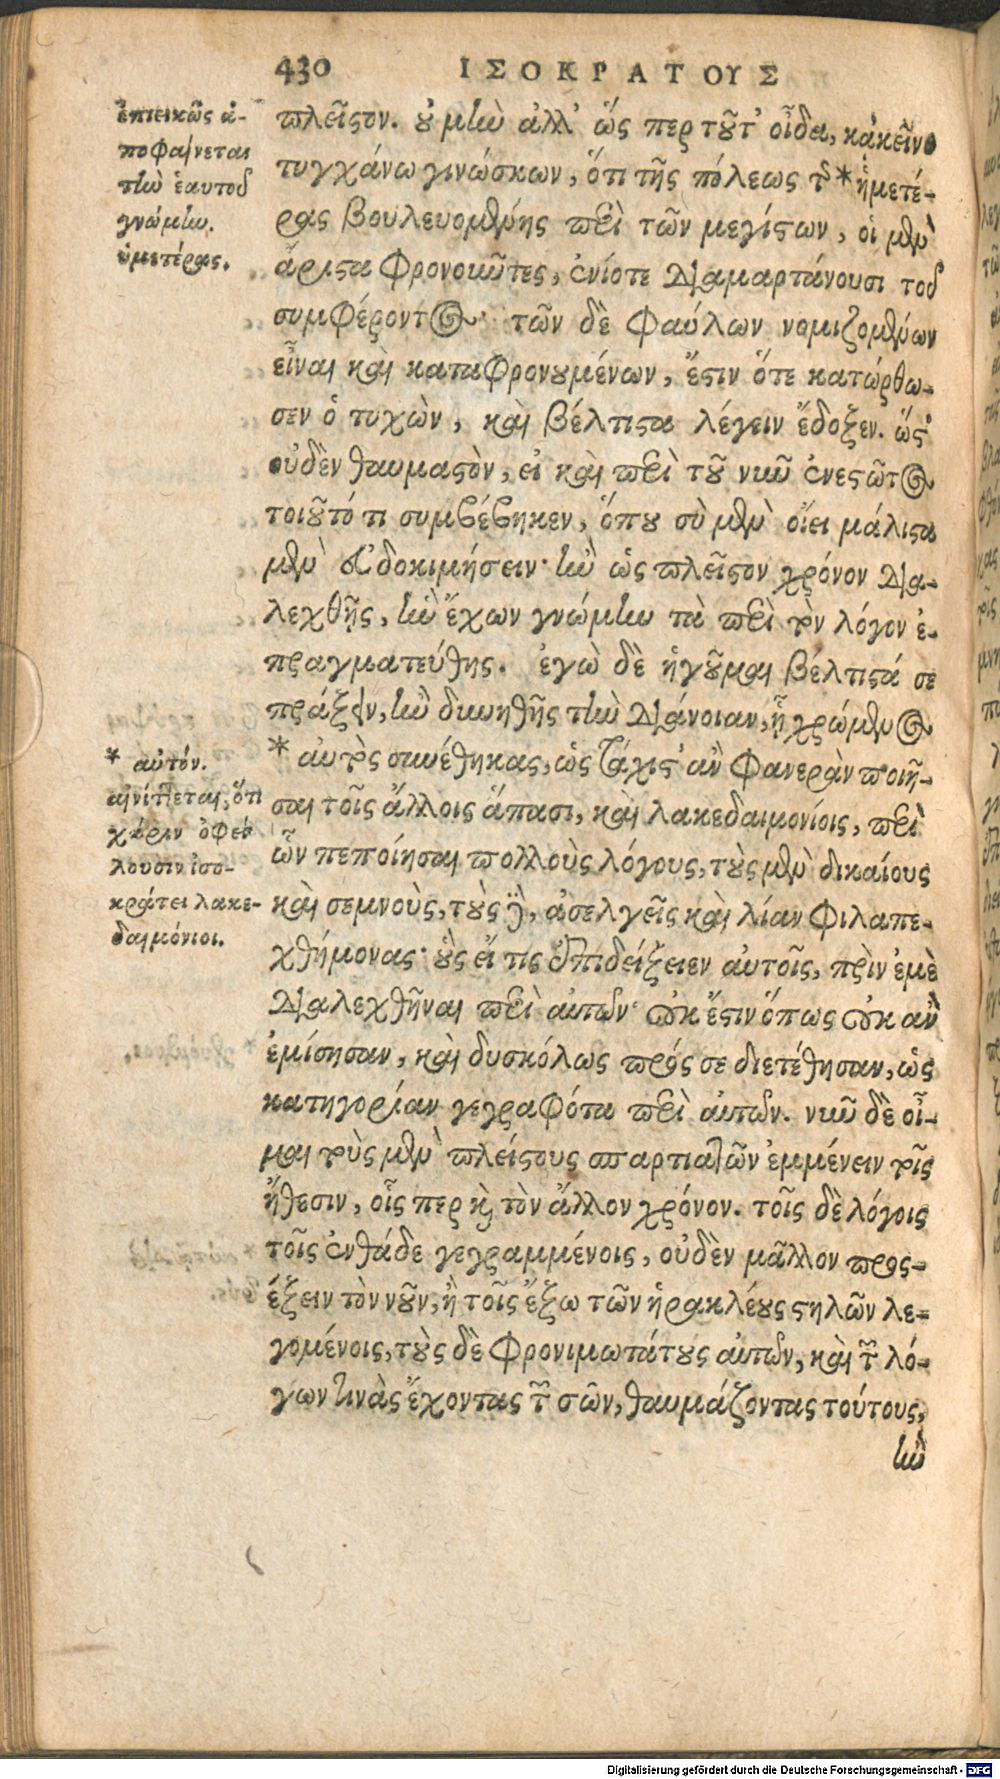 430 ΙΣΟΚΡΑΤΟΥΣ
ἐπιεικῶς ἀ-
ποφαίνεται
τὴν ἑαυτοῦ
γνώμην.
ὑμετέρας.
πλεῖστον. οὐ μὴν ἀλλ' ὥς περ τοῦτ' οἶδα, κἀκεῖνο
τυγχάνω γινώσκων, ὅτι τῆς πόλεως τῆς * ἡμετέ-
ρας βουλευομένης περὶ τῶν μεγίστων, οἱ μὲν
ἄριστα φρονοῦντες, ἐνίοτε διαμαρτάνουσι τοῦ
συμφέροντος· τῶν δὲ φαύλων νομιζομένων
εἶναι καὶ καταφρονουμένων, ἔστιν ὅτε κατώρθω-
σεν ὁ τυχὼν, καὶ βέλτιστα λέγειν ἔδοξεν. ὥστ'
οὐδὲν θαυμαστὸν, εἰ καὶ περὶ τοῦ νῦν ἐνεστῶτος
τοιοῦτό τι συμβέβηκεν, ὅπου σὺ μὲν οἴει μάλιστα
μὲν εὐδοκιμήσειν· ἢν ὡς πλεῖστον χρόνον δια-
λεχθῇς, ἣν ἔχων γνώμην τὰ περὶ τὸν λόγον ἐ-
πραγματεύθης. ἐγὼ δὲ ἡγοῦμαι βέλτιστά σε
πράξειν, ἢν δυνηθῇς τὴν διάνοιαν, ᾗ χρώμενος
* αὐτὸς συνέθηκας, ὡς τάχιστ' ἂν φανερὰν ποιῆ-
σαι τοῖς ἄλλοις ἅπασι, καὶ λακεδαιμονίοις, περὶ
ὧν πεποίησαι πολλοὺς λόγους, τοὺς μὲν δικαίους
καὶ σεμνοὺς, τοὺς δὲ, ἀσελγεῖς καὶ λίαν φιλαπε-
χθήμονας· οὓς εἴ τις ἐπιδείξειεν αὐτοῖς, πρὶν ἐμὲ
διαλεχθῆναι περὶ αὐτῶν· οὐκ ἔστιν ὅπως οὐκ ἂν
ἐμίσησαν, καὶ δυσκόλως πρός σε διετέθησαν, ὡς
κατηγορίαν γεγραφότα περὶ αὐτῶν. νῦν δὲ οἶ-
μαι τοὺς μὲν πλείστους σπαρτιατῶν ἐμμένειν τοῖς
ἤθεσιν, οἷς περ καὶ τὸν ἄλλον χρόνον. τοῖς δὲ λόγοις
τοῖς ἐνθάδε γεγραμμένοις, οὐδὲν μᾶλλον προσ-
έξειν τὸν νοῦν, ἢ τοῖς ἔξω τῶν ἡρακλέους στηλῶν λε-
γομένοις, τοὺς δὲ φρονιμωτάτους αὐτῶν, καὶ τῶν λό-
γων τινὰς ἔχοντας τῶν σῶν, θαυμάζοντας τούτους,
ἢν
* αὐτόν.
αἰνίττεται, ὅτι
χάριν ὀφεί
λουσιν ἰσο-
κράτει λακε-
δαιμόνιοι.
Digitalisierung gefördert durch die Deutsche Forschungsgemeinschaft - DFG